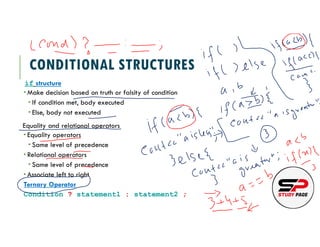 (cond) ? — : — ;
CONDITIONAL STRUCTURES
if structure
• Make decision based on truth or falsity of condition
• If condition met, body executed
• Else, body not executed
Equality and relational operators
• Equality operators
• Same level of precedence
• Relational operators
• Same level of precedence
• Associate left to right
Ternary Operator
Condition ? statement1 : statement2 ;
if( )
if( ) else
a, b
if(a>b){
}
if(a<b){
}else{
}
a<b
a==b
3+4+5
SP
STUDY PAGE